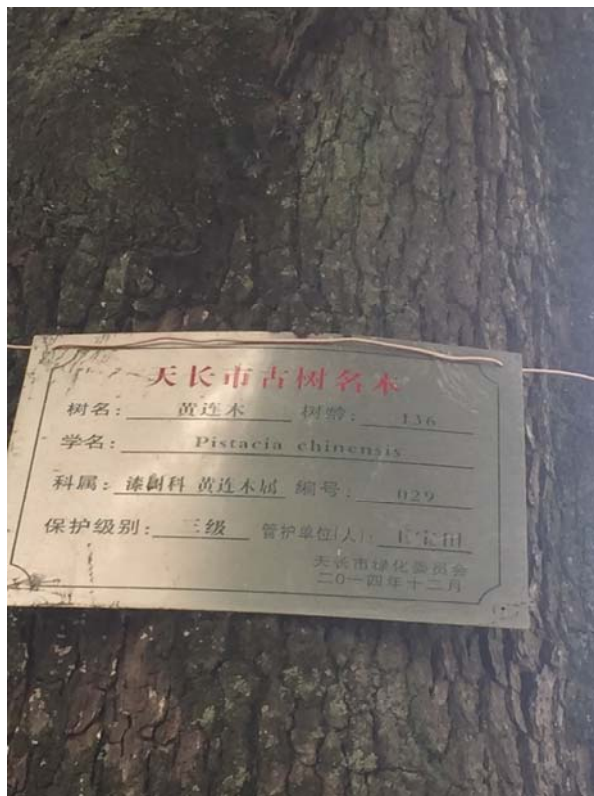 天长市古树名木
树名：黄连木 树龄：136
学名：Pistacia chinensis
科属：漆树科 黄连木属 编号：029
保护级别：三级 管护单位(人)：
天长市绿化委员会
二〇一四年十二月